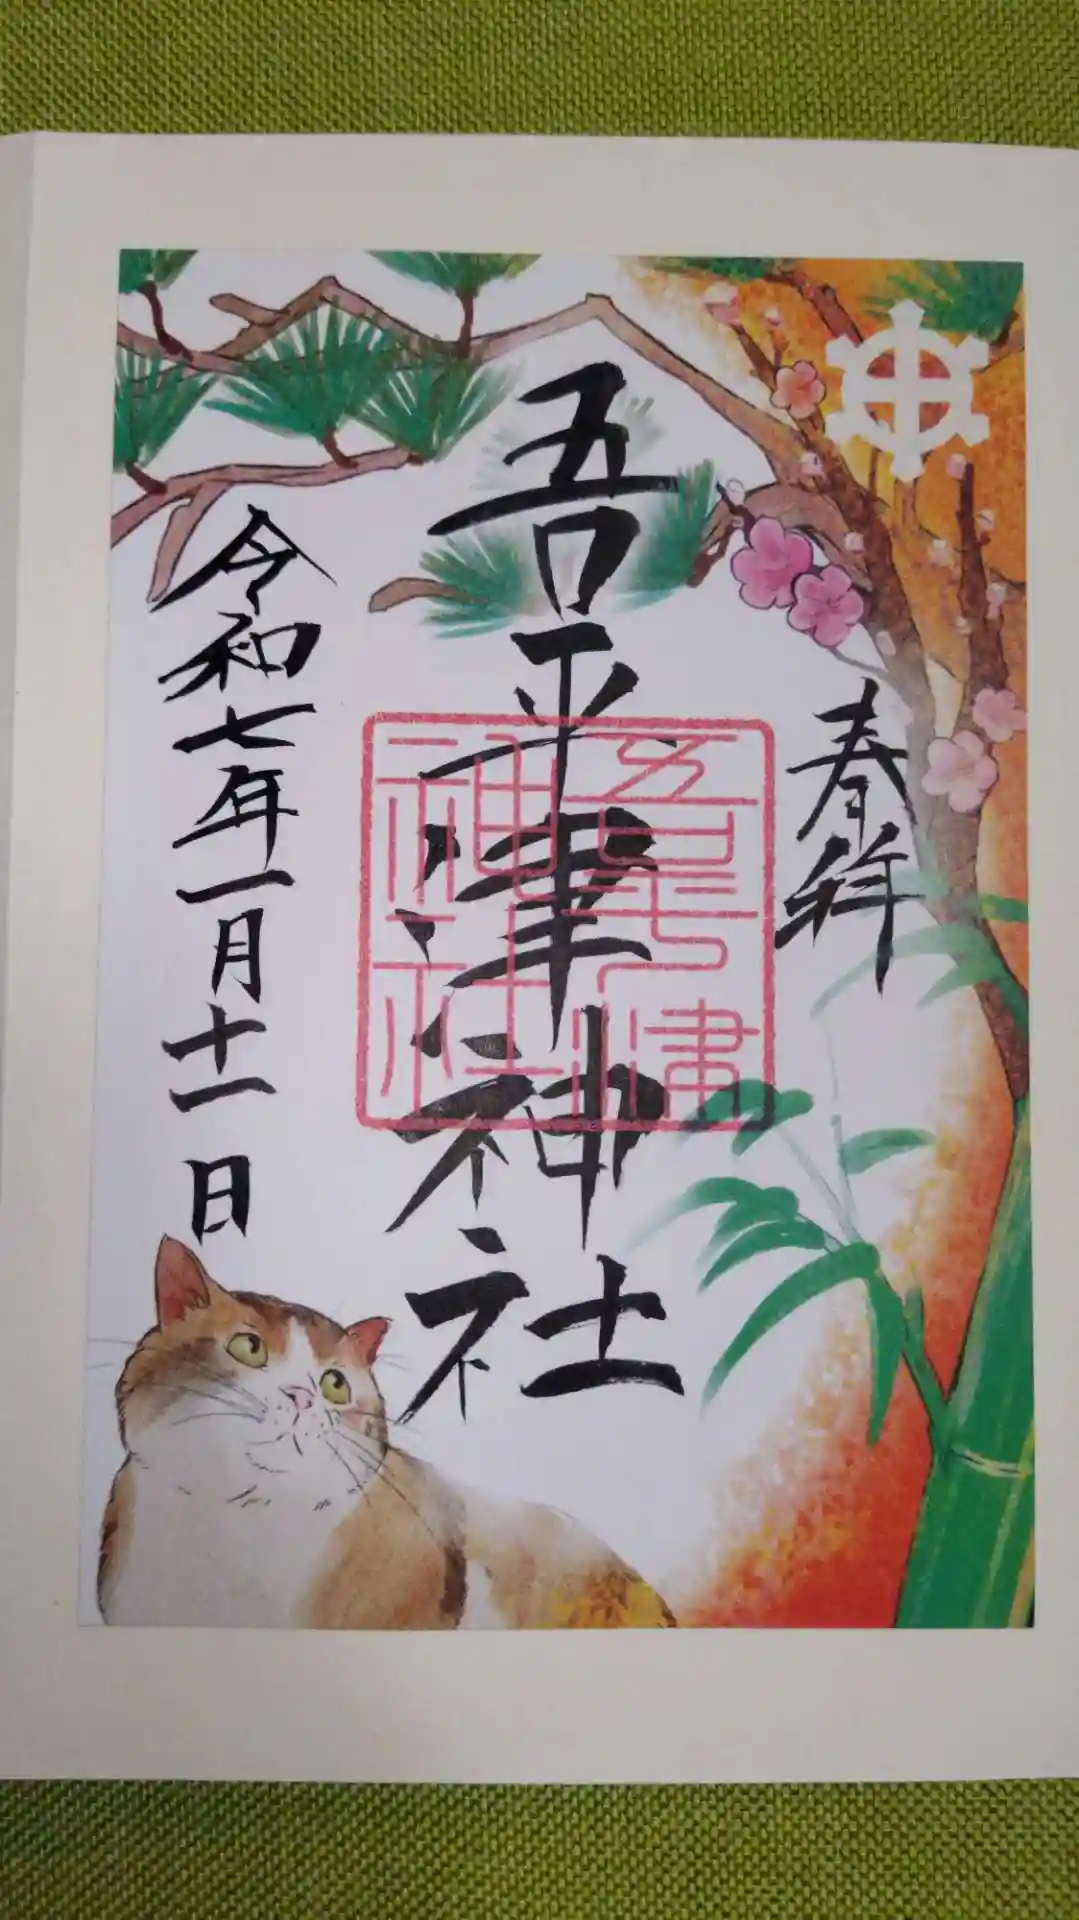 奉拝
吾平津神社
吾平津神社
令和七年一月十一日